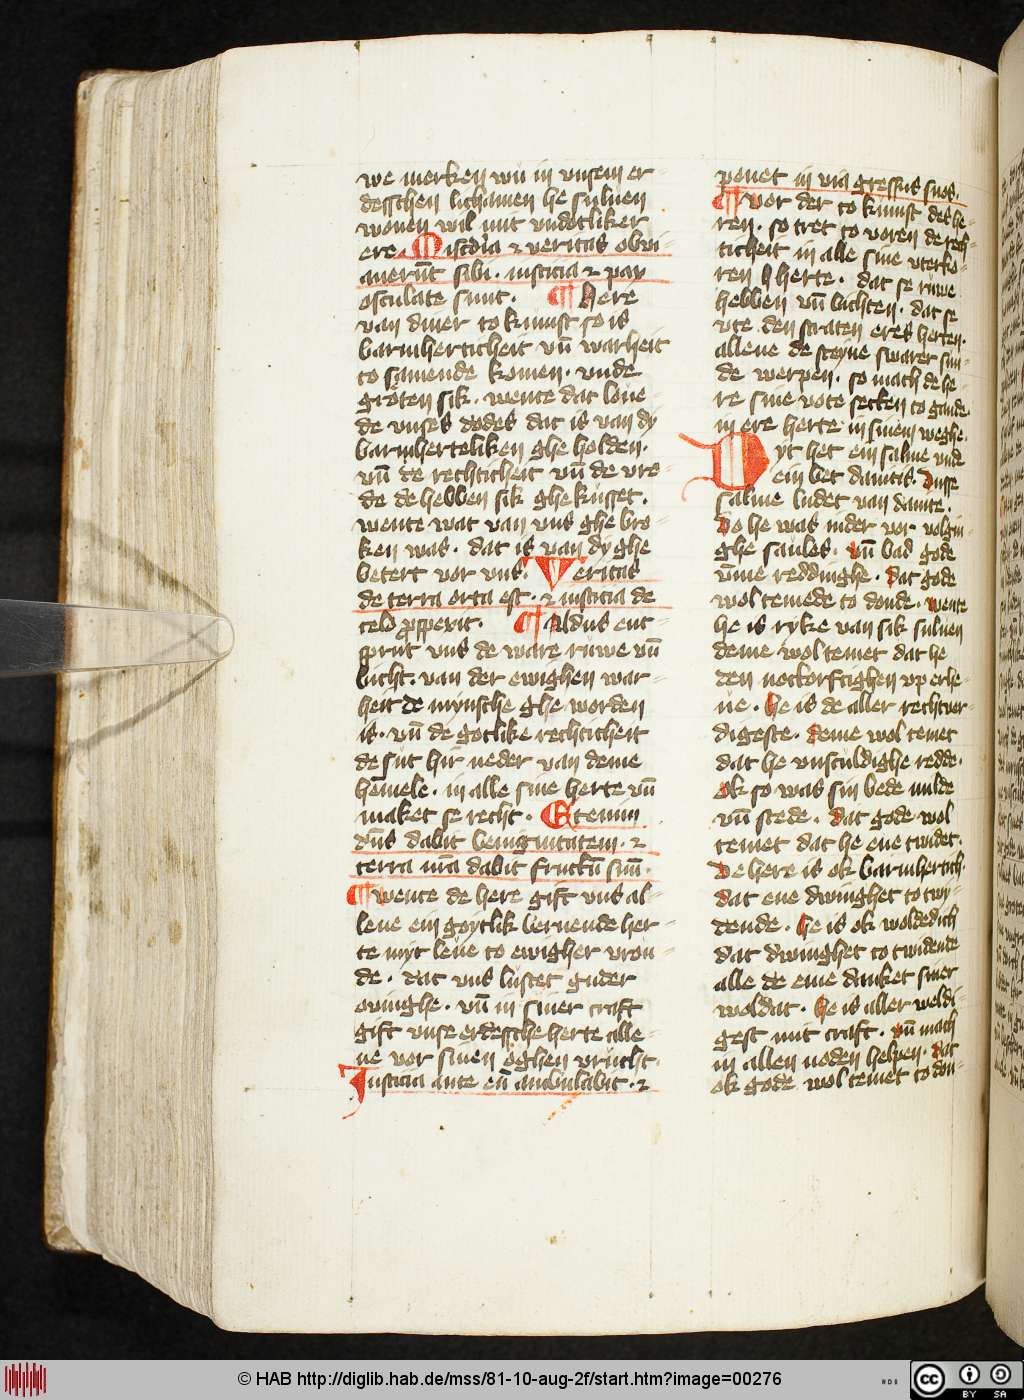 we merken wu in unsem er-
desschen lichamen he sulven
wonen wil mit undotliker
ere. Misc̄dia ⁊ veritas obvi-
auerūt sibi. iusticia ⁊ pax
osculate sunt. ¶ Here
van diner to kumst so is
barmherticheit vn̄ warheit
to samende komen. vnde
groten sik. wente dat loue-
de vnses dodes dat is van dy
barmherteliken ghe holden.
vn̄ de rechticheit vn̄ de vre-
de de hebben sik ghe kusset.
wente wat van vns ghe bro-
ken was. dat is van dy ghe
betert vor vns. Veritas
de terra orta est. ⁊ iusticia de
celo prospexit. ¶ Aldus ent-
sprut vns de ware ruwe vn̄
bicht. van der ewighen war-
heit de mynsche ghe worden
is. vn̄ de gotlike rechticheit
de sut hir neder van deme
hemele. in alle sine herte vn̄
maket se recht. Etenim
dn̄s dabit benignitatem. ⁊
terra nr̄a dabit fructū suū.
¶ wente de here gift vns al-
lene ein goytlik bernende her-
te myt leue to ewigher vrou-
de. dat vns lustet guder
ouinghe. vn̄ in siner craft
gift vnse erdessche herte alle-
ne vor sinen oghen vrucht.
Iusticia ante eū ambulabit. ⁊
ponet in via gressus suos.
¶ vor der to kumst des he-
ren. so tret to voren de rech-
ticheit in alle sine vterko-
ren herte. dat se ruwe
hebben vn̄ bichten. dat se
vte den straten eres herten.
allene de steyne swarer sun-
de werpen. so mach de he-
re sine vote setten to gande
in ere herte in sinem weghe.
Dyt het ein salme vnde
ein bet dauitis. Dusse
salme ludet van dauite.
Do he was nider vor volgin-
ghe saules. vn̄ bad gode
vm̄e reddinghe. Dat gode
wol temede to donde. wente
he is ryke van sik suluen
deme wol temet dat he
den nottorftighen vp erhe-
ue. he is de aller rechtver-
digeste. deme wol temet
dat he vnsculdighe redde.
ok so was sin bede milde
vn̄ stede. dat gode wol
temet dat he ene twidet.
De here is ok barmhertich.
dat ene dwinghet to twy-
dende. he is ok woldedich
dat dwinghet to twidende
alle de eme danket siner
woldat. he is aller weldi-
gest mit craft. vn̄ mach
in allen noden helpen. dat
ok gode wol temet to don-
© HAB http://diglib.hab.de/mss/81-10-aug-2f/start.htm?image=00276
cc BY SA